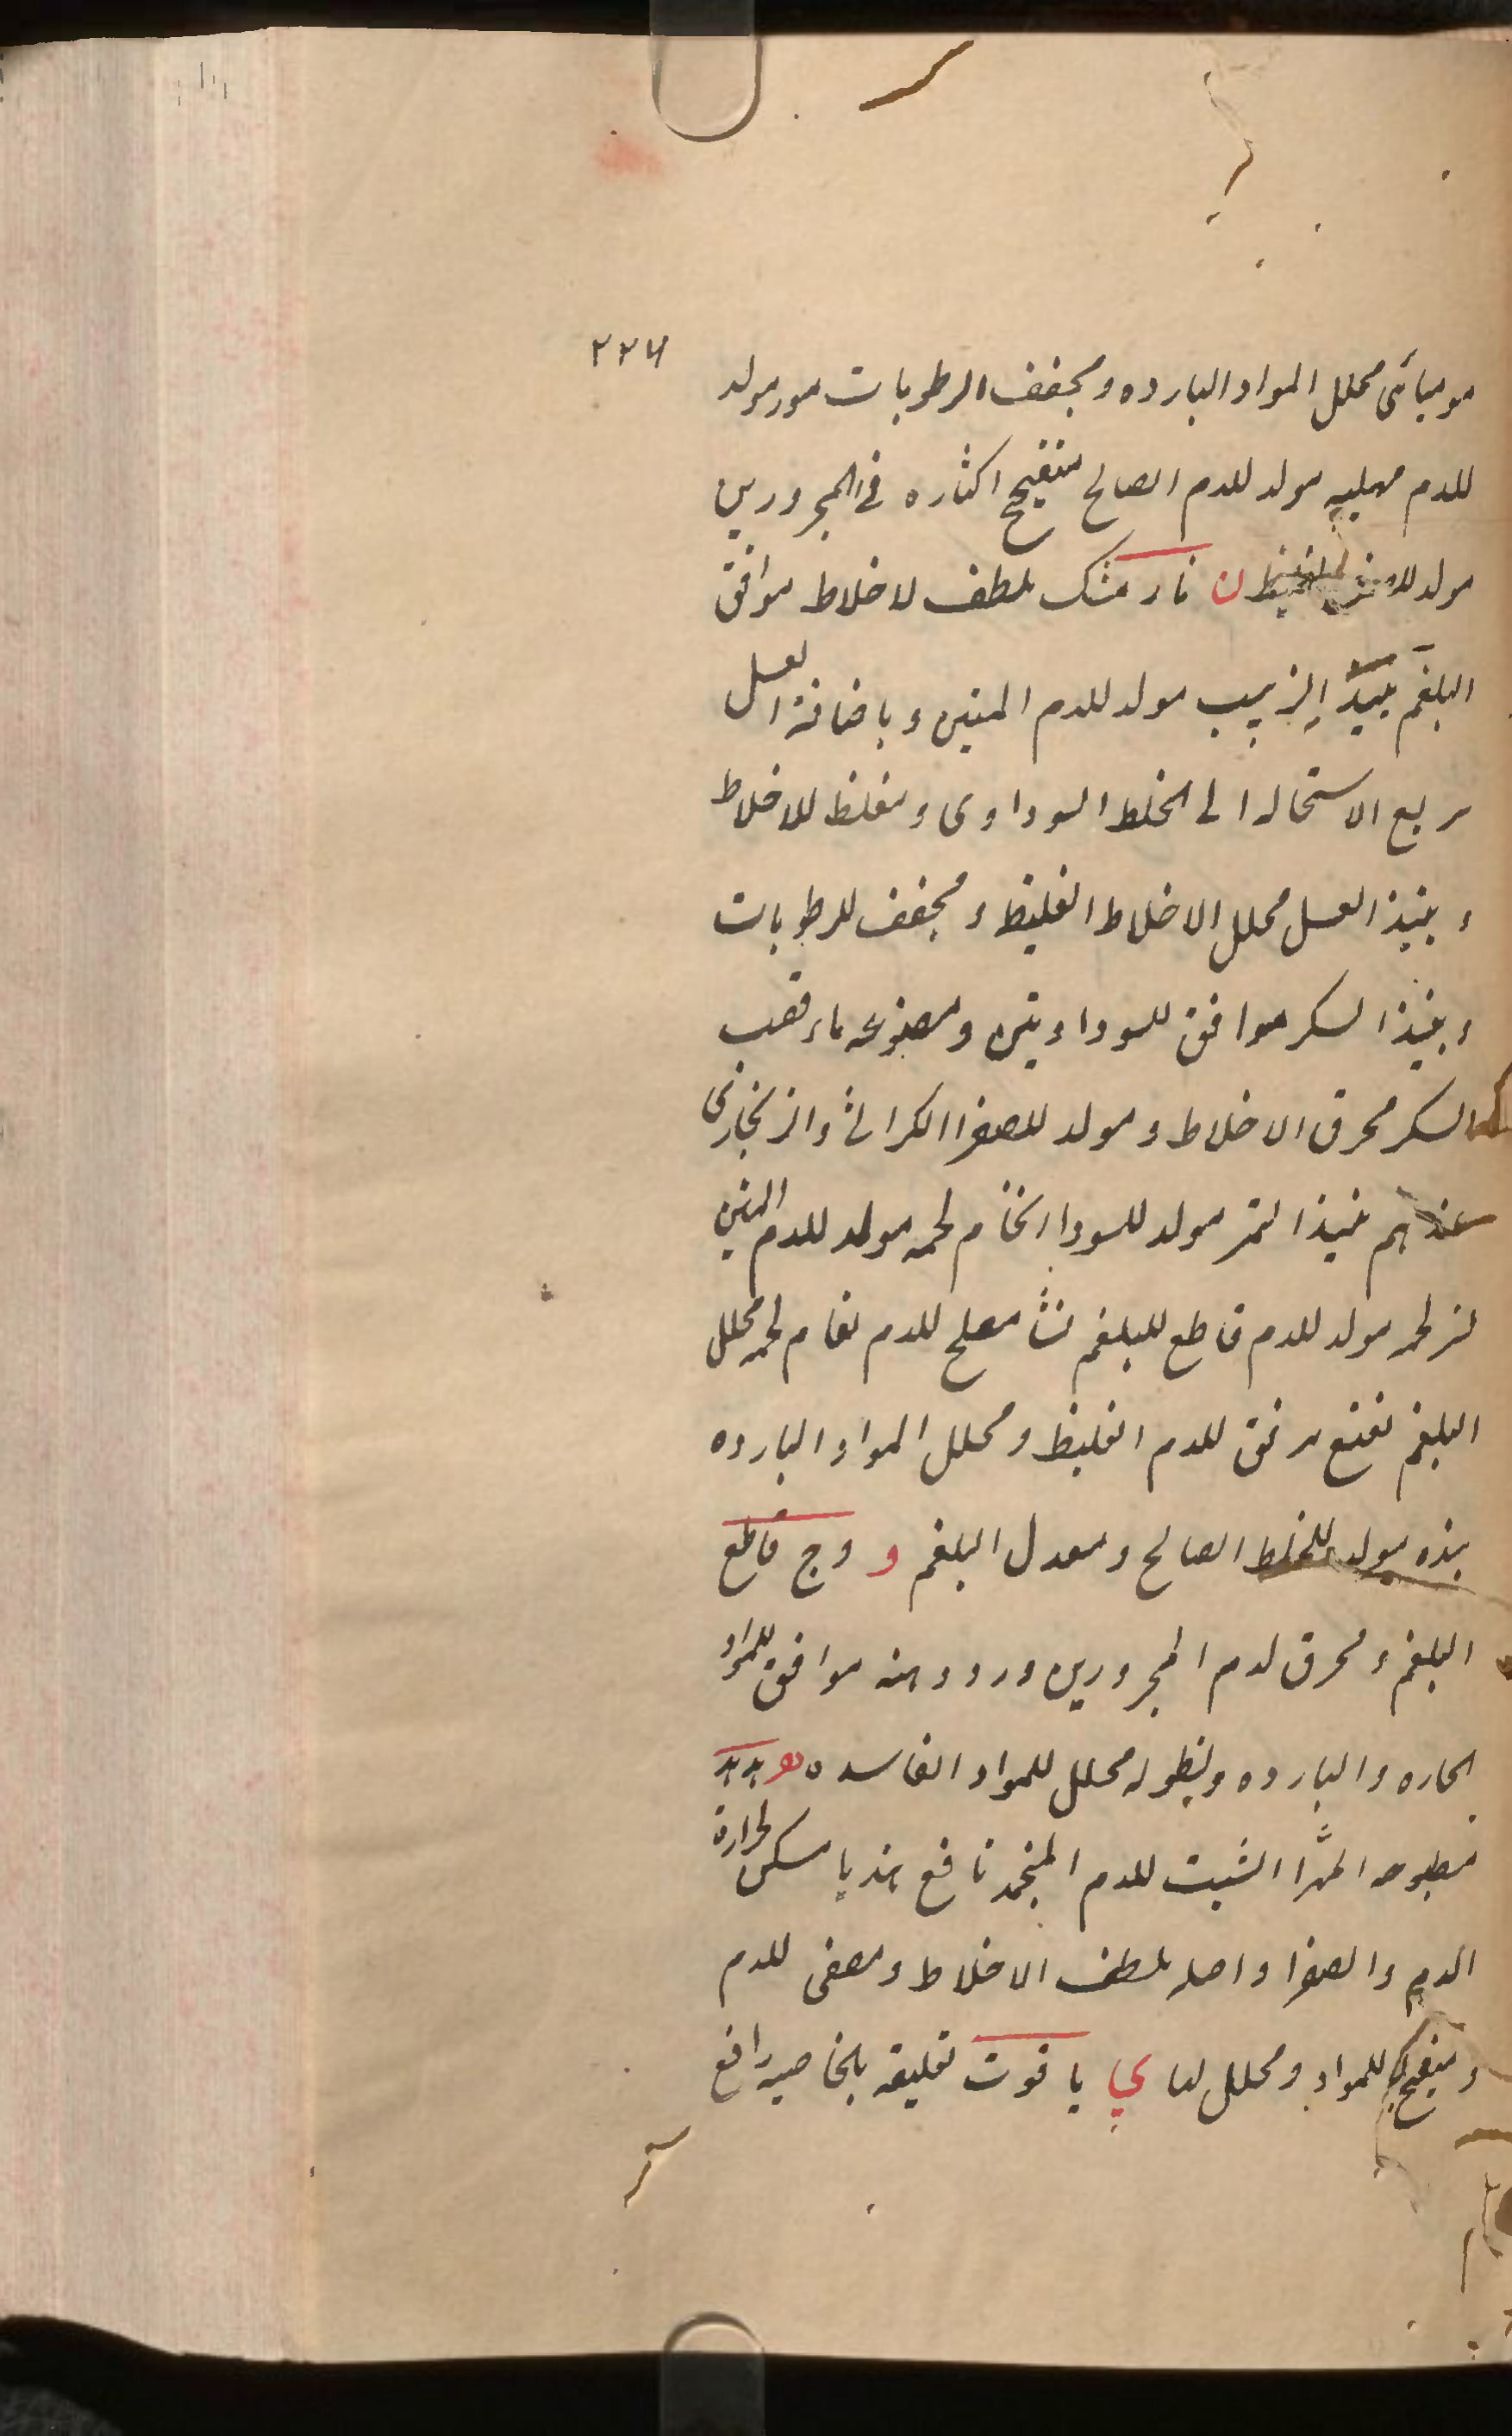 ٢٢٤
موميائى محلل المواد البارده ومجفف الرطوبات موز مولد
للدم مهلبيه مولد للدم الصالح منضج اكثاره فى المحرورين
مولد ن نارمشك ملطف لاخلاط موافق
البلغم نبيذ الزبيب مولد للدم المتين وباضافة العسل
سريع الاستحاله الى الخلط السوداوى ومغلظ للاخلاط
ونبيذ العسل محلل الاخلاط الغليظ ومجفف للرطوبات
ونبيذ السكر موافق للسوداويين ومصنوعه ماء قصب
السكر محرق الاخلاط ومولد للصفرا الكراثى والزنجارى
عندهم نبيذ التمر مولد للسودا النحام لحمه مولد للدم المتين
لحمه مولد للدم قاطع للبلغم نشا مصلح للدم نعام لحمه محلل
البلغم نعنع مرقق للدم الغليظ ومحلل المواد البارده
مولد للخلط الصالح ومعدل البلغم و وج قاطع
البلغم ومحرق لدم المحرورين ورد دهنه موافق للمواد
الحاره والبارده ونطوله محلل للمواد الفاسده ه
مطبوخه المهرا الشبت للدم المنجمد نافع هندبا مسكن لحرارة
الدم والصفرا واصله ملطف الاخلاط ومصفى للدم
ومنضج للمواد ومحلل لها ى ياقوت تعليقه بالخاصيه رافع